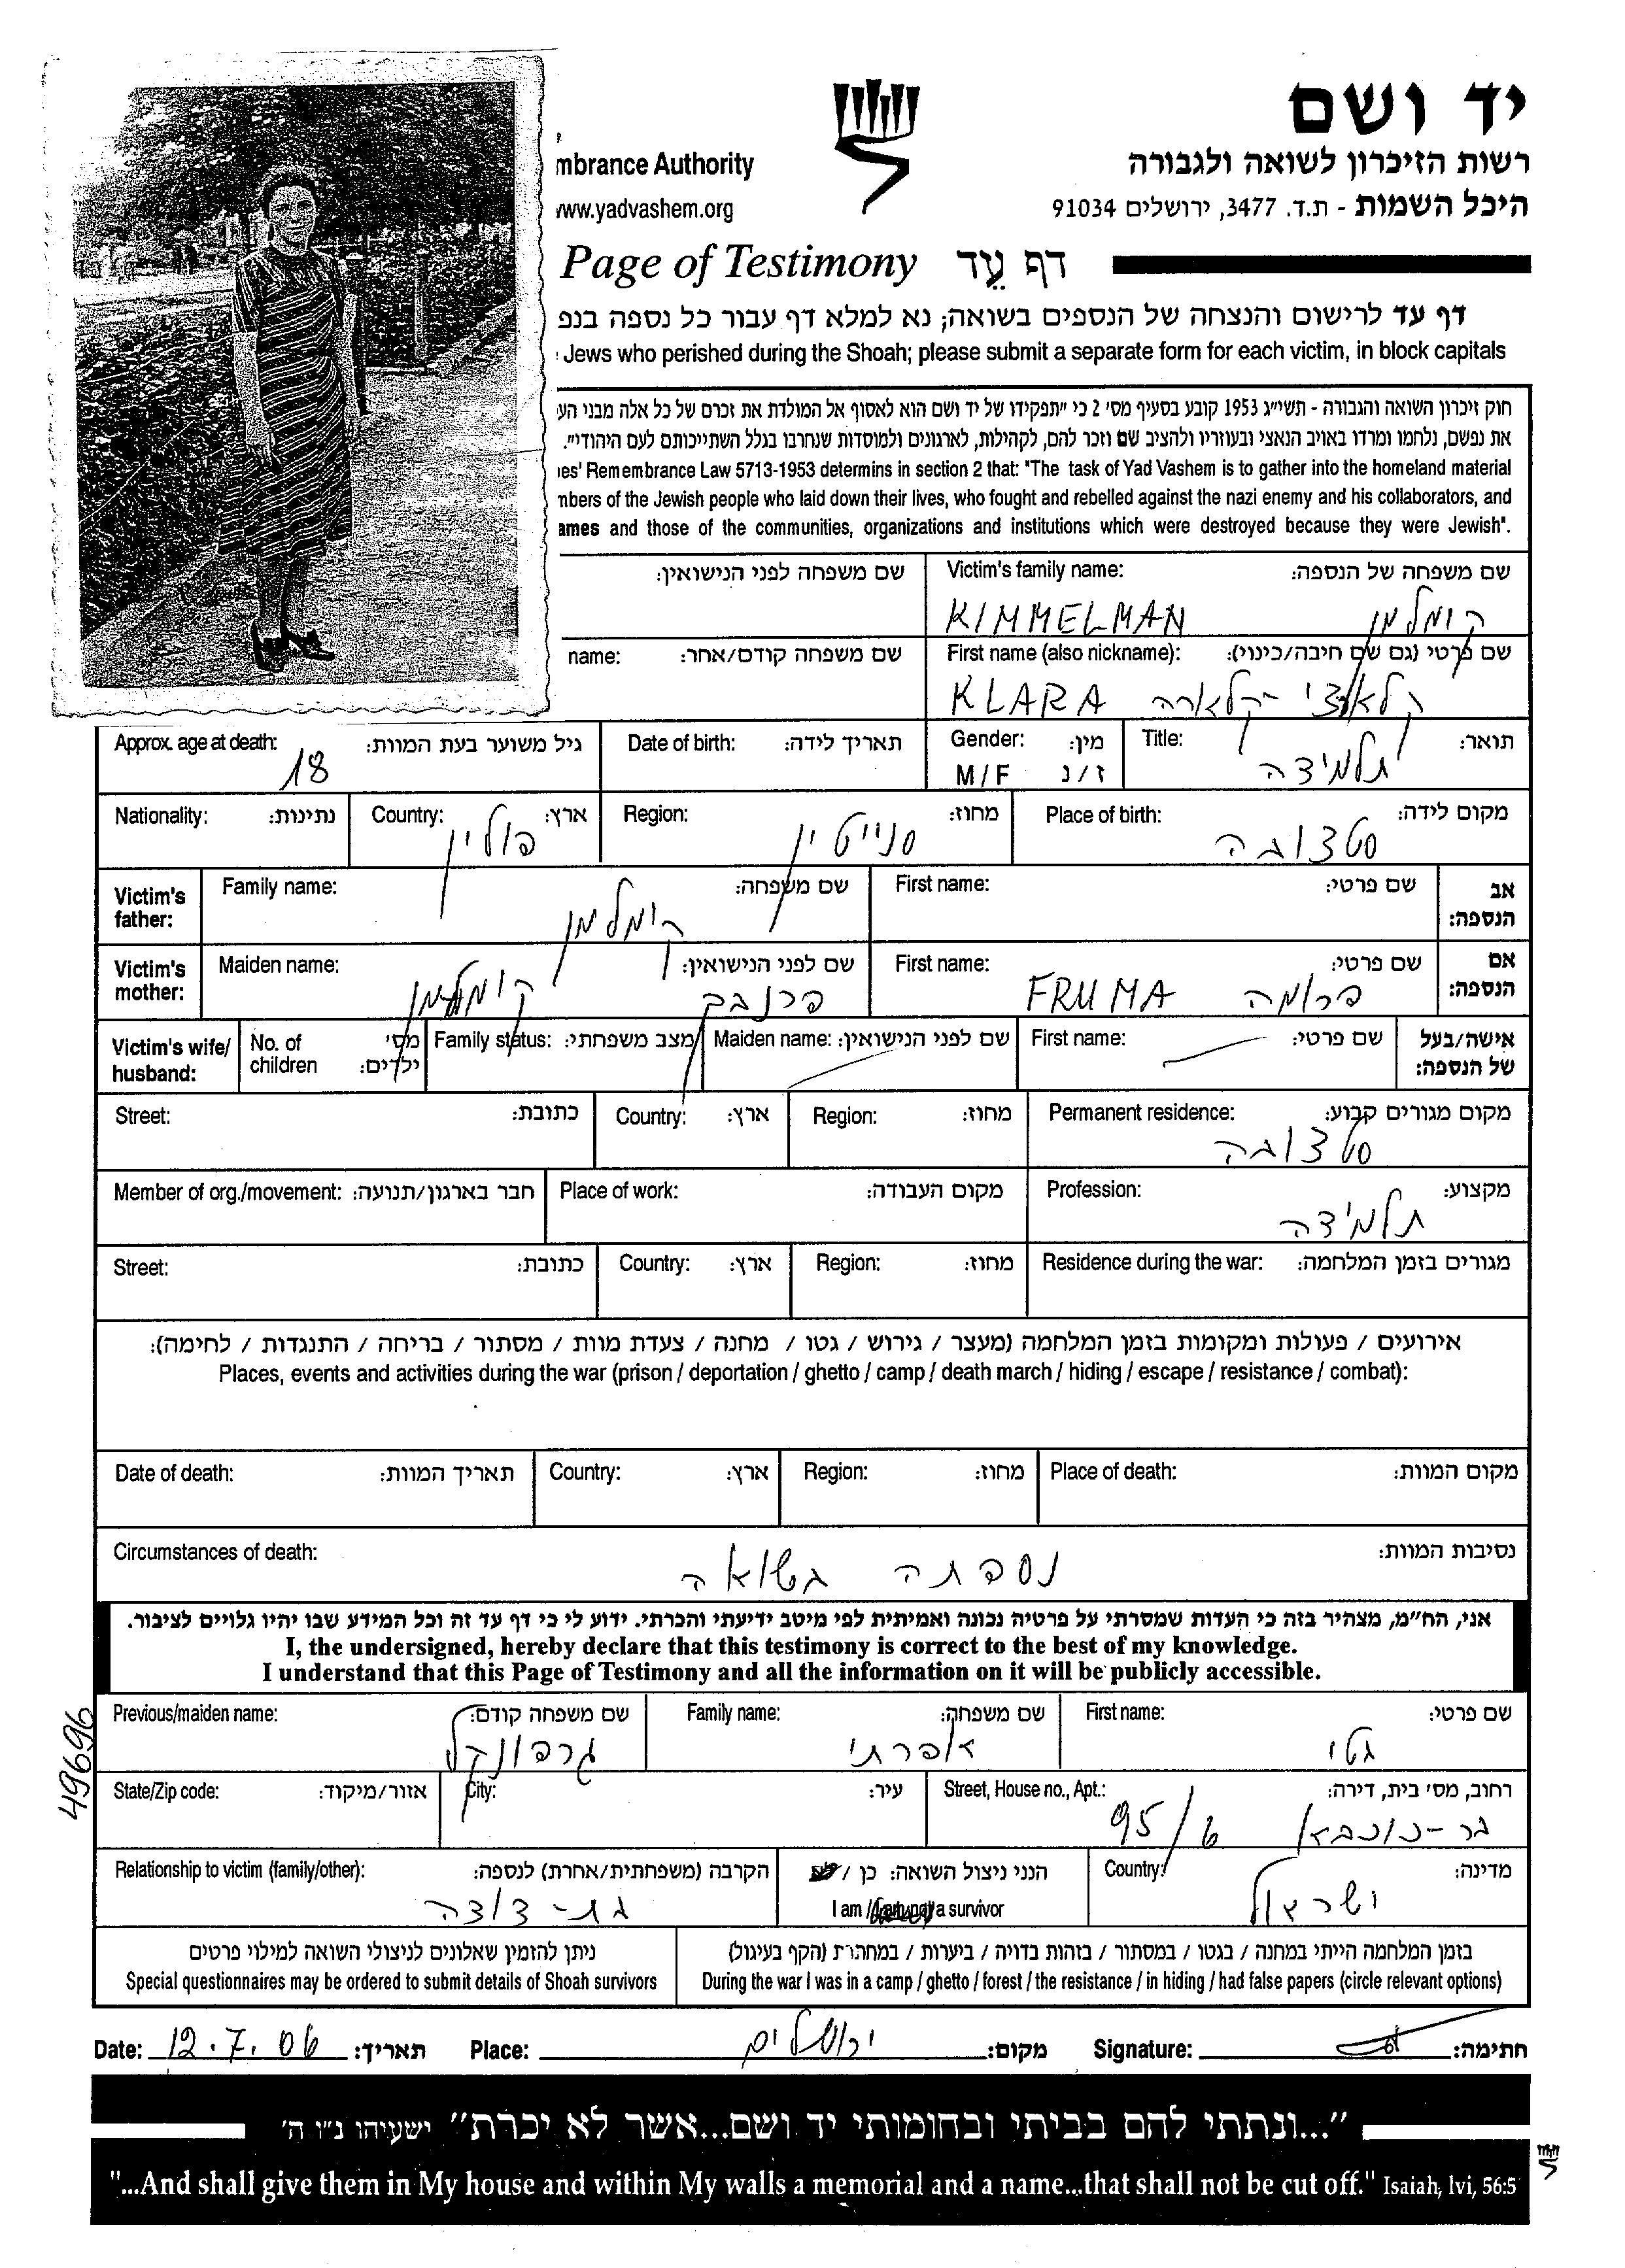 יד ושם
רשות הזיכרון לשואה ולגבורה
mbrance Authority
היכל השמות - ת.ד. 3477, ירושלים 91034
www.yadvashem.org
Page of Testimony דף עֵד
דף עד לרישום והנצחה של הנספים בשואה; נא למלא דף עבור כל נספה בנפ
Jews who perished during the Shoah; please submit a separate form for each victim, in block capitals
חוק זיכרון השואה והגבורה - תשי״ג 1953 קובע בסעיף מס׳ 2 כי ״תפקידו של יד ושם הוא לאסוף אל המולדת את זכרם של כל אלה מבני הע
את נפשם, נלחמו ומרדו באויב הנאצי ובעוזריו ולהציב שם וזכר להם, לקהילות, לארגונים ולמוסדות שנחרבו בגלל השתייכותם לעם היהודי״.
es' Remembrance Law 5713-1953 determins in section 2 that: "The task of Yad Vashem is to gather into the homeland material
mbers of the Jewish people who laid down their lives, who fought and rebelled against the nazi enemy and his collaborators, and
ames and those of the communities, organizations and institutions which were destroyed because they were Jewish".
שם משפחה של הנספה: Victim's family name: שם משפחה לפני הנישואין:
קומלמן KIMMELMAN
שם פרטי (גם שם חיבה/כינוי): First name (also nickname): שם משפחה קודם/אחר: name:
קלארה KLARA
תואר: Title: מין: Gender: תאריך לידה: Date of birth: גיל משוער בעת המוות: Approx. age at death:
תלמידה ז/נ M/F 18
מקום לידה: Place of birth: מחוז: Region: ארץ: Country: נתינות: Nationality:
סטצובה סנייטין פולין
אב הנספה: שם פרטי: First name: שם משפחה: Family name: Victim's father:
קומלמן
אם הנספה: שם פרטי: First name: שם לפני הנישואין: Maiden name: Victim's mother:
פרומה FRUMA קומלמן
אישה/בעל של הנספה: שם פרטי: First name: שם לפני הנישואין: Maiden name: מצב משפחתי: Family status: מס׳ ילדים: No. of children Victim's wife/ husband:
מקום מגורים קבוע: Permanent residence: מחוז: Region: ארץ: Country: כתובת: Street:
סטצובה
מקצוע: Profession: מקום העבודה: Place of work: חבר בארגון/תנועה: Member of org./movement:
תלמידה
מגורים בזמן המלחמה: Residence during the war: מחוז: Region: ארץ: Country: כתובת: Street:
אירועים / פעולות ומקומות בזמן המלחמה (מעצר / גירוש / גטו / מחנה / צעדת מוות / מסתור / בריחה / התנגדות / לחימה):
Places, events and activities during the war (prison / deportation / ghetto / camp / death march / hiding / escape / resistance / combat):
מקום המוות: Place of death: מחוז: Region: ארץ: Country: תאריך המוות: Date of death:
נסיבות המוות: Circumstances of death:
נספתה בשואה
אני, הח״מ, מצהיר בזה כי העדות שמסרתי על פרטיה נכונה ואמיתית לפי מיטב ידיעתי והכרתי. ידוע לי כי דף עד זה וכל המידע שבו יהיו גלויים לציבור.
I, the undersigned, hereby declare that this testimony is correct to the best of my knowledge.
I understand that this Page of Testimony and all the information on it will be publicly accessible.
שם פרטי: First name: שם משפחה: Family name: שם משפחה קודם: Previous/maiden name:
גטי אפרתי גרפונקל
49696
רחוב, מס׳ בית, דירה: Street, House no., Apt.: עיר: City: אזור/מיקוד: State/Zip code:
בר-כוכבא 95/6
מדינה: Country: הנני ניצול השואה: כן / הקרבה (משפחתית/אחרת) לנספה: Relationship to victim (family/other):
ישראל I am / a survivor בת-דודה
בזמן המלחמה הייתי במחנה / בגטו / במסתור / בזהות בדויה / ביערות / במחתרת (הקף בעיגול) ניתן להזמין שאלונים לניצולי השואה למילוי פרטים
During the war I was in a camp / ghetto / forest / the resistance / in hiding / had false papers (circle relevant options) Special questionnaires may be ordered to submit details of Shoah survivors
Date: 12.7.06 תאריך: Place: ירושלים מקום: Signature: חתימה:
״...ונתתי להם בביתי ובחומותי יד ושם...אשר לא יכרת״ ישעיהו נ״ו ה׳
"...And shall give them in My house and within My walls a memorial and a name...that shall not be cut off." Isaiah, lvi, 56:5